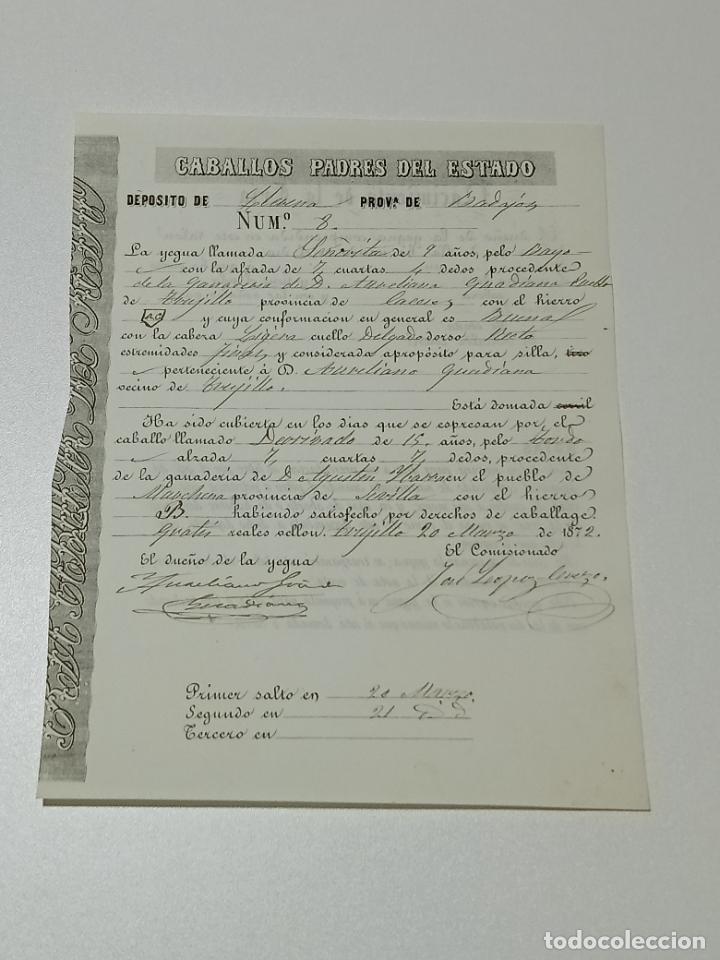 CABALLOS PADRES DEL ESTADO
DEPÓSITO DE Llerena PROVª DE Badajoz
NUM.º 8.
La yegua llamada Señorita de 9 años, pelo Bayo
con la alzada de 7 cuartas 4 dedos procedente
de la ganadería de D. Aureliano Guadiana Pueblo
de Trujillo provincia de Caceres con el hierro
y cuya conformacion en general es Buena
con la cabeza Ligera cuello Delgado dorso Recto
estremidades finas y considerada apropósito para silla, tiro
perteneciente á D. Aureliano Guadiana
vecino de Trujillo.
Está domada cerril
Ha sido cubierta en los dias que se espresan por el
caballo llamado Derribado de 15 años, pelo Tordo
alzada 7 cuartas 7 dedos, procedente
de la ganadería de D Agustin Ybarra en el pueblo de
Marchena provincia de Sevilla con el hierro
B. habiendo satisfecho por derechos de caballage
Gratis reales vellon. Trujillo 20 Marzo de 1872.
El dueño de la yegua El Comisionado
Aureliano Guadiana José Lopez
Primer salto en 20 Marzo.
Segundo en 21 id id
Tercero en
todocoleccion.net